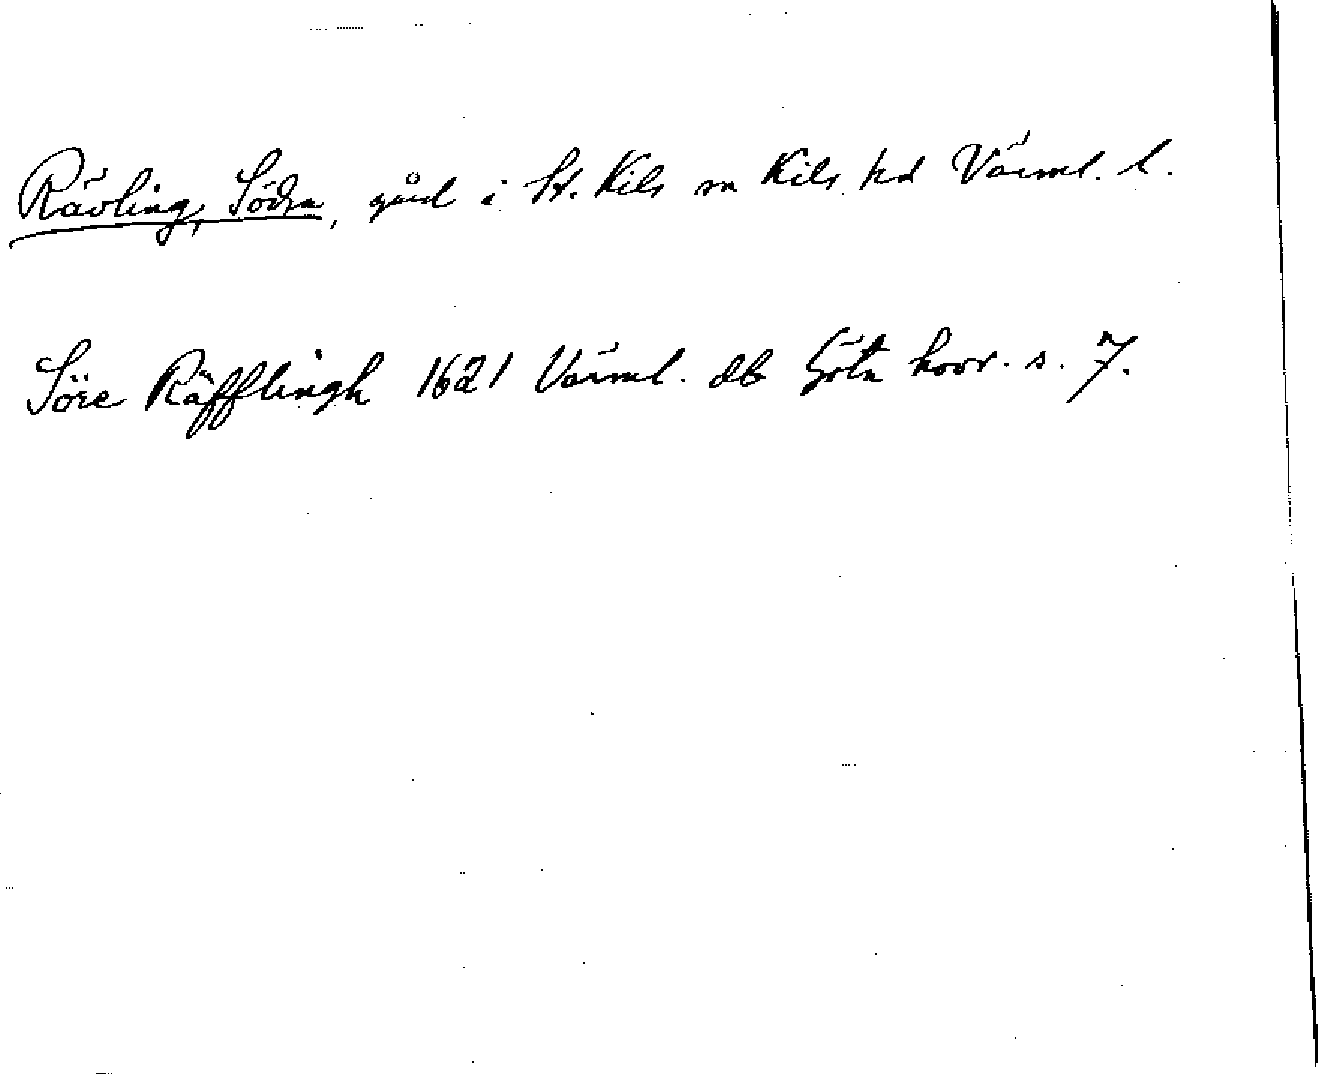 Rävling, Södra, gård i St. Kils sn Kils hd Värml. l.
Söre Räfflingh 1621 Värml. db Göta hovr. s. 7.